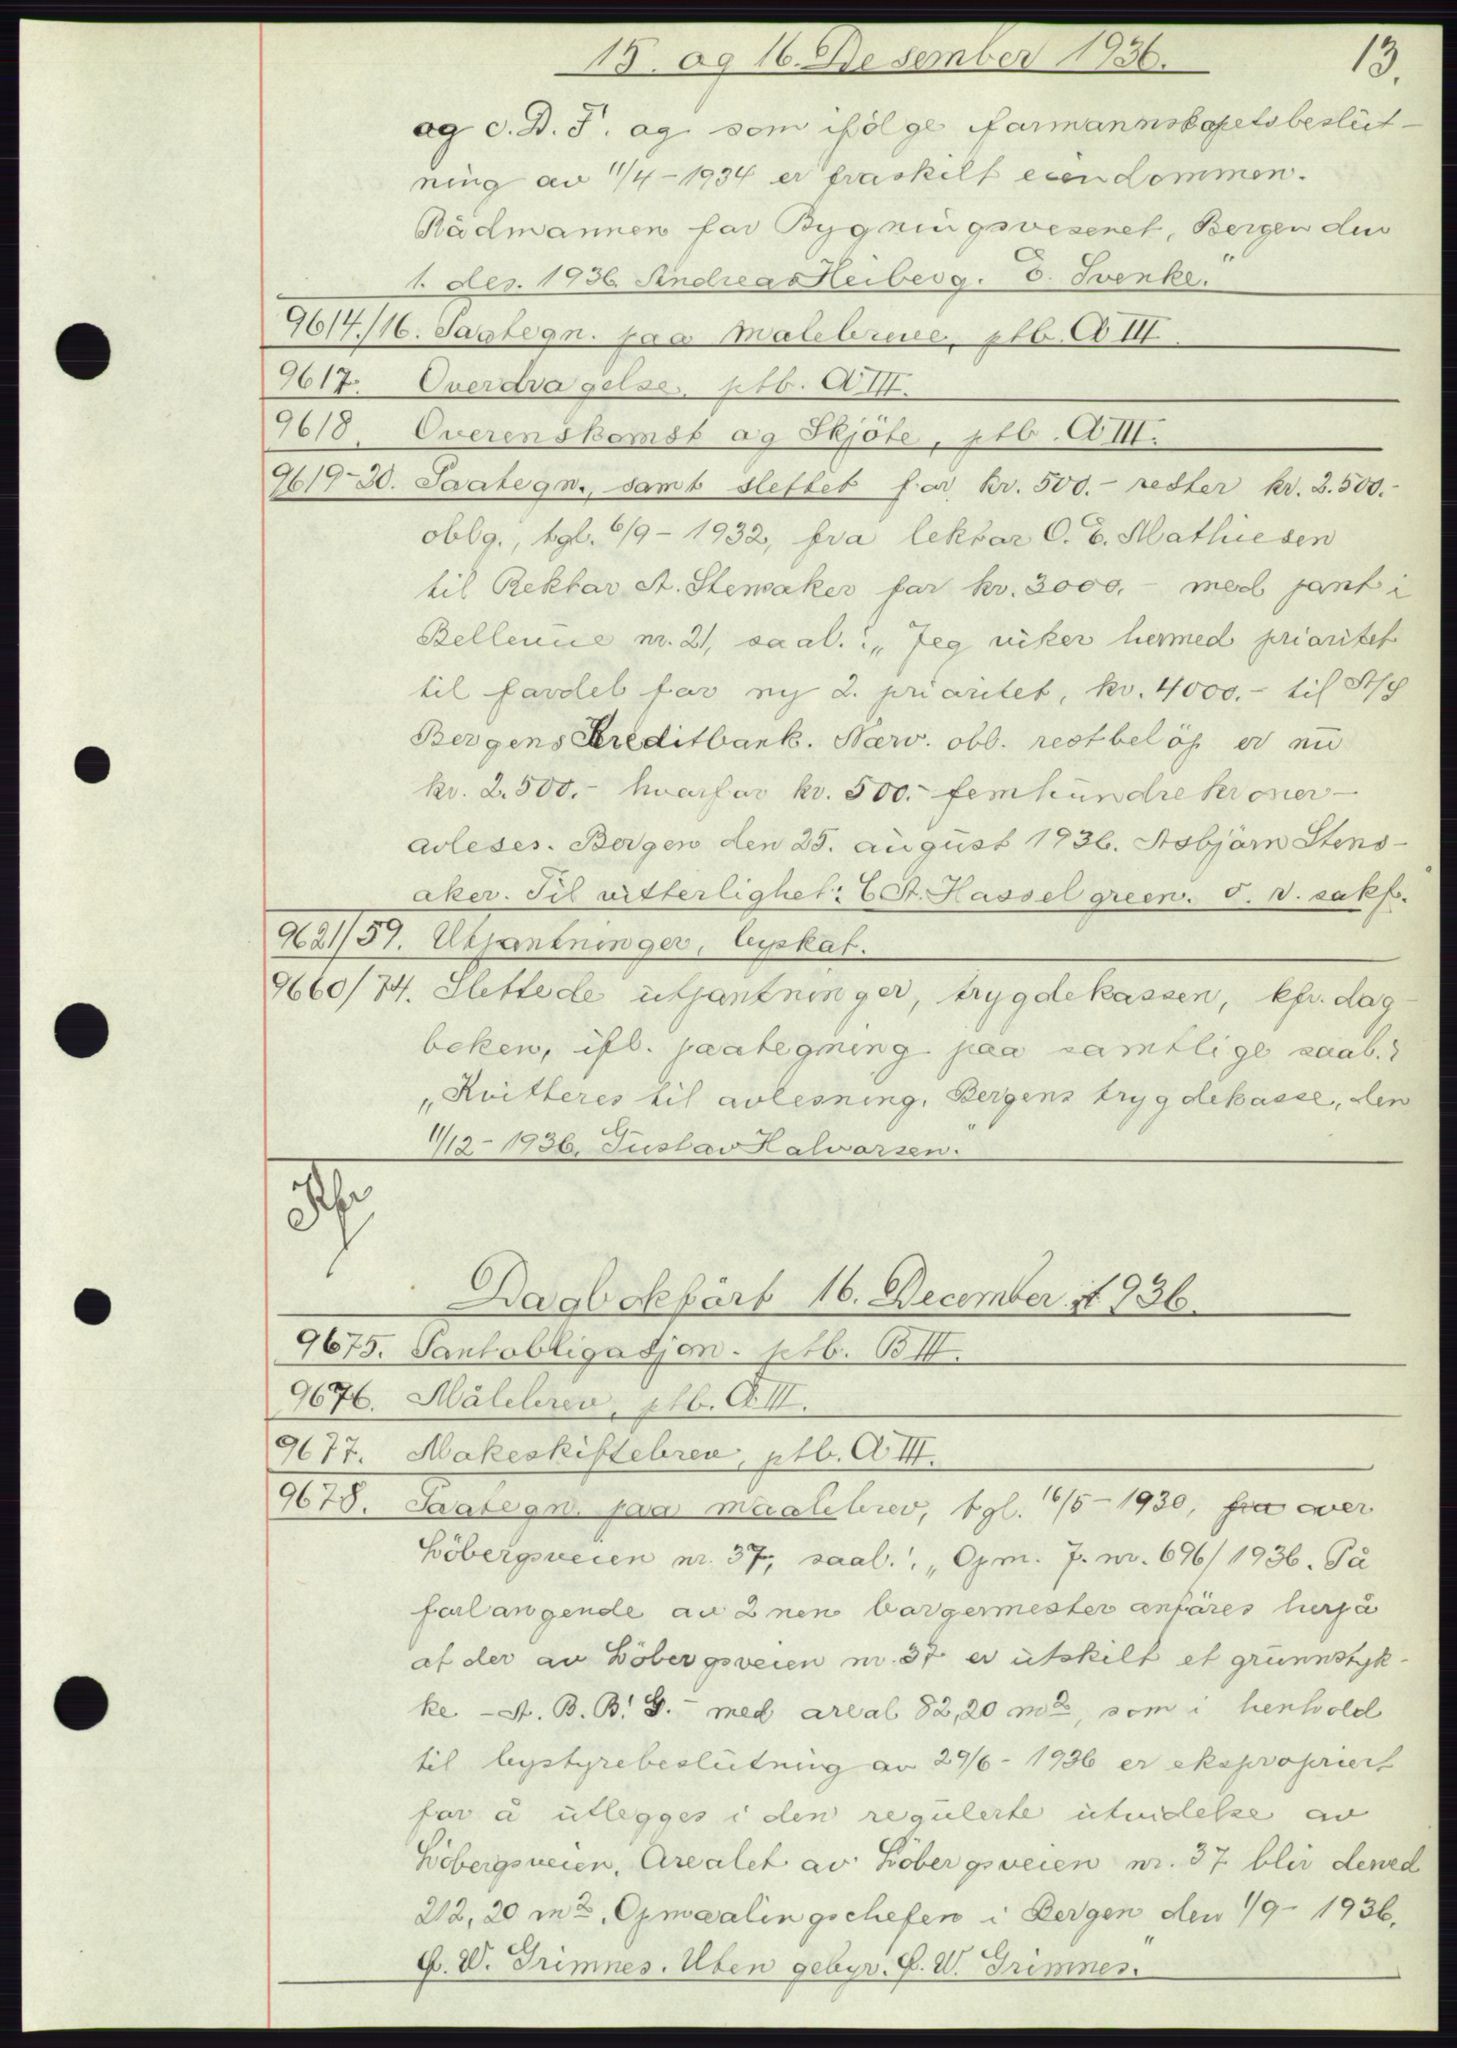 15. og 16. Desember 1936.
13.
og c. D. F. og som ifölge formannskapetsbeslut-
ning av 11/4-1934 er fraskilt eiendommen.
Rådmannen for Bygningsvesenet, Bergen den
1. des. 1936. Andreas Heiberg. E. Svenke."
9614./16. Paategn. paa malebreve, ptb. A III.
9617. Overdragelse, ptb. A III.
9618. Overenskomst og Skjöte, ptb. A III.
9619-20. Paategn., samt slettet for kr. 500.- rester kr. 2.500.-
oblg., tgl. 6/9-1932, fra lektor C. E. Mathiesen
til Rektor A. Stensaker for kr. 3000.- med pant i
Bellevue nr. 21, saal.: „Jeg viker hermed prioritet
til fordel for ny 2. prioritet, kr. 4000.- til A/S
Bergens Kreditbank. Nærv. obl. restbelöp er nu
kr. 2.500.- hvorfor kr. 500.- femhundrekroner-
avleses. Bergen den 25. august 1936. Asbjörn Stens-
aker. Til vitterlighet: E A. Hasselgreen. o. r. sakf."
9621/59. Utpantninger, byskat.
9660/74. Slettede utpantninger, trygdekassen, kfr. dag-
boken, ifl. paategning paa samtlige saal.:
„Kvitteres til avlesning. Bergens trygdekasse, den
11/12-1936. Gustav Halvorsen."
Dagbokfört 16. December 1936.
9675. Pantobligasjon. ptb. B III.
9676. Målebrev, ptb. A III.
9677. Makeskiftebrev, ptb. A III.
9678. Paategn. paa maalebrev, tgl. 16/5-1930, fra over
Löbergsveien nr. 37, saal.: „Opm. J. nr. 696/1936. På
forlangende av 2nen borgermester anföres herpå
at der av Löbergsveien nr. 37 er utskilt et grunnstyk-
ke - A. B. B! G. - med areal 82,20 m2, som i henhold
til bystyrebeslutning av 29/6-1936 er ekspropriert
for å utlegges i den regulerte utvidelse av
Löbergsveien. Arealet av Löbergsveien nr. 37 blir derved
212,20 m2. Opmaalingschefen i Bergen den 1/9-1936.
G. W. Grimnes. Uten gebyr. G. W. Grimnes."